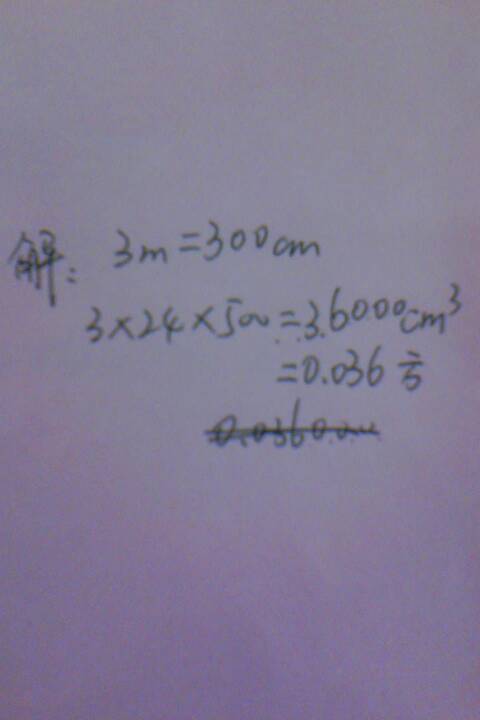 解：3m=300cm
3×24×500=36000cm³
=0.036方